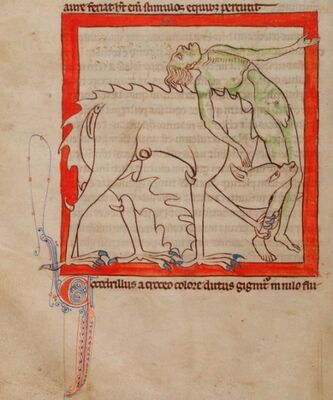 aure feriat hꝫ eni stimulos equibꝫ percutit
Cocodrillus a croceo colore dictus gignit᷑ in nilo flu